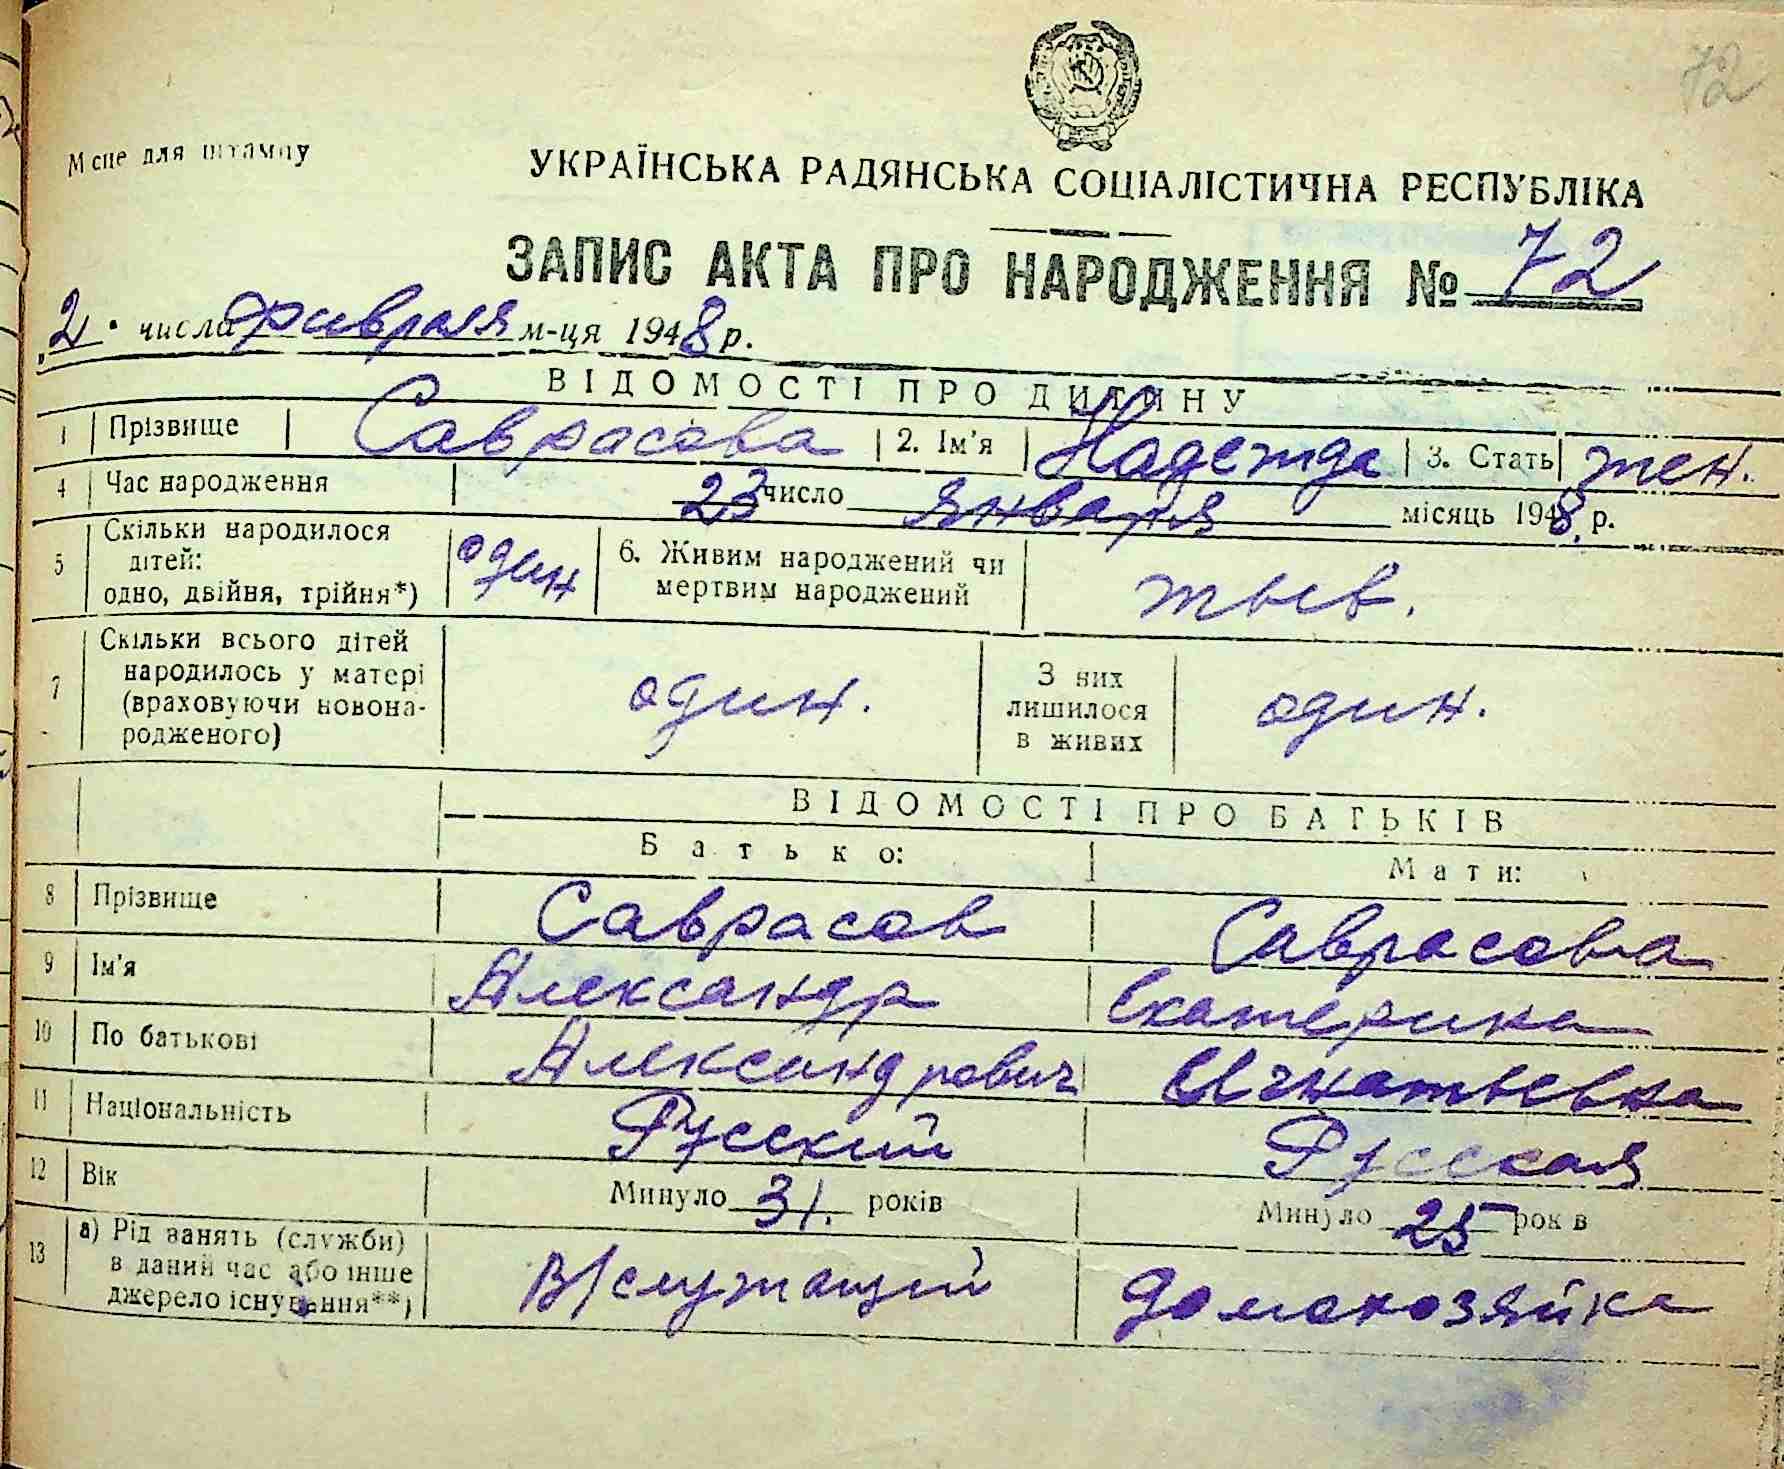 72
Місце для штампу
УКРАЇНСЬКА РАДЯНСЬКА СОЦІАЛІСТИЧНА РЕСПУБЛІКА
ЗАПИС АКТА ПРО НАРОДЖЕННЯ № 72
2 числа февраля м-ця 1948 р.
ВІДОМОСТІ ПРО ДИТИНУ
1 Прізвище Саврасова 2. Ім'я Надежда 3. Стать жен.
4 Час народження 23 число января місяць 1948 р.
5 Скільки народилося дітей: одно, двійня, трійня*) один 6. Живим народжений чи мертвим народжений жив.
7 Скільки всього дітей народилось у матері (враховуючи новонародженого) один. З них лишилося в живих один.
ВІДОМОСТІ ПРО БАТЬКІВ
Батько: Мати:
8 Прізвище Саврасов Саврасова
9 Ім'я Александр Екатерина
10 По батькові Александрович Игнатьевна
11 Національність Русский Русская
12 Вік Минуло 31. років Минуло 25 років
13 а) Рід занять (служби) в даний час або інше джерело існування**) В/служащий домохозяйка